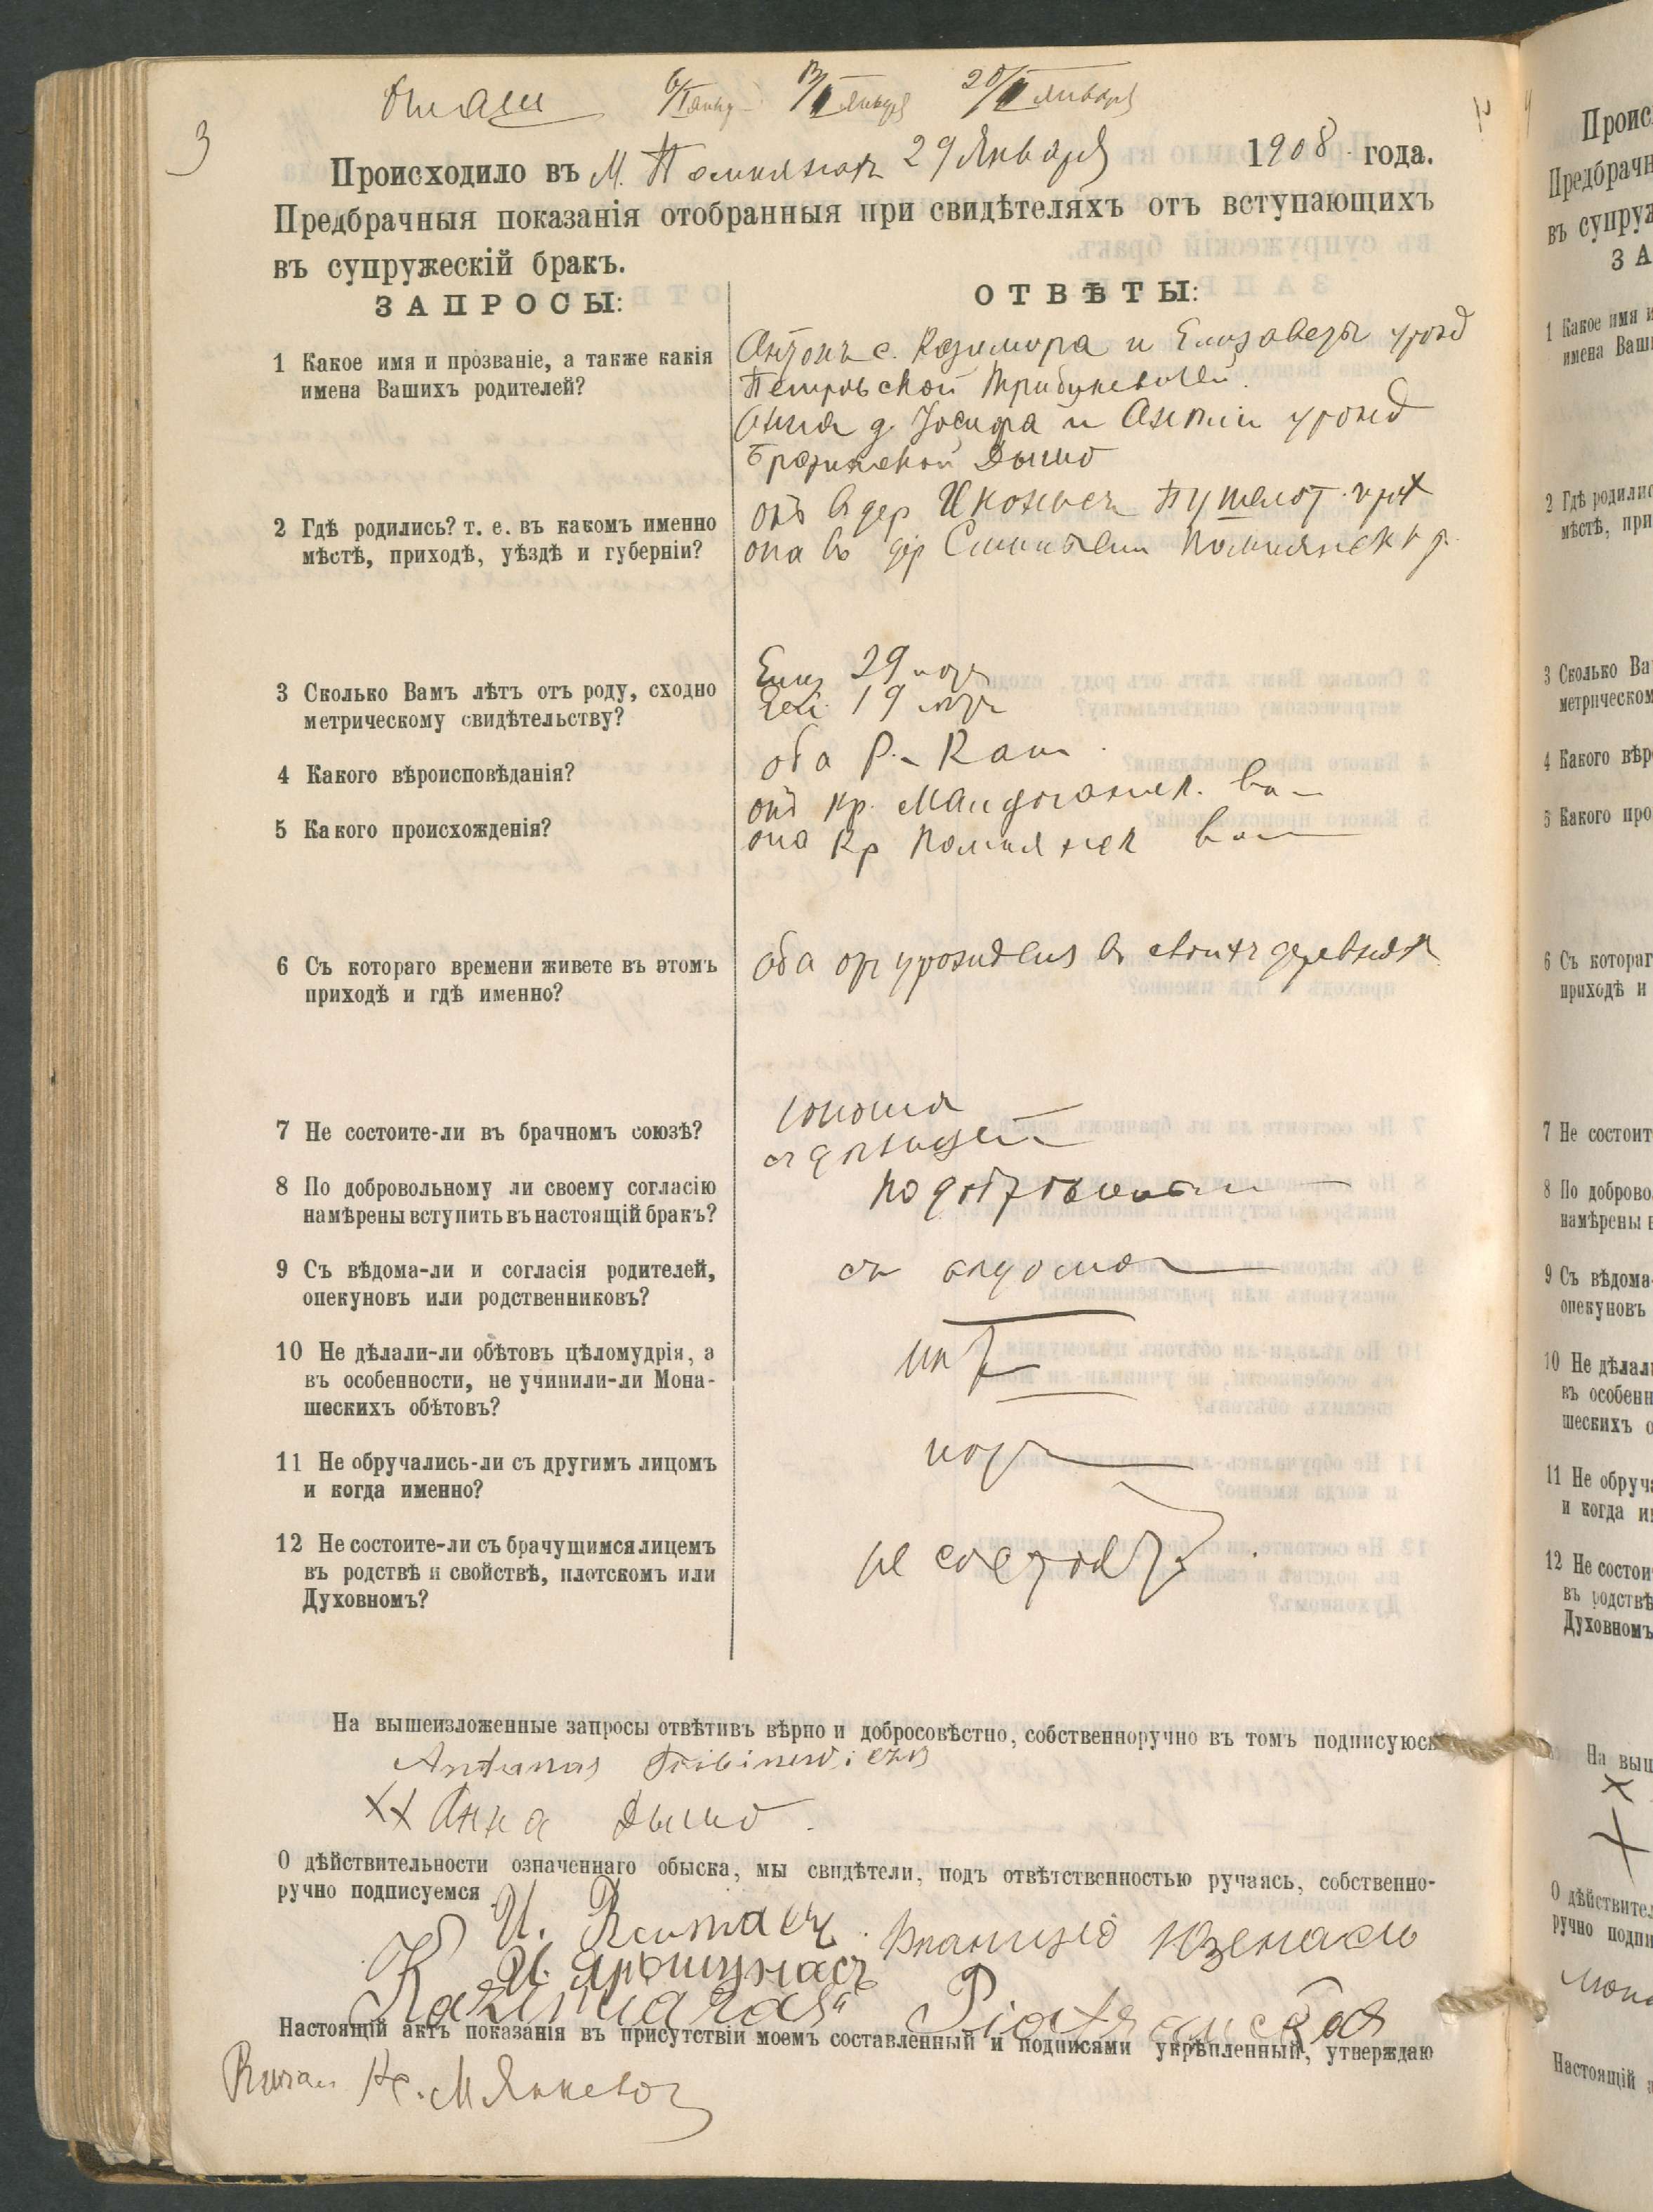 3
6/I янв. 13/I января 20/I января
Происходило въ М. Помпянахъ 29 Января 1908 года.
Предбрачныя показанія отобранныя при свидѣтеляхъ отъ вступающихъ
въ супружескій бракъ.
ЗАПРОСЫ:
ОТВѢТЫ:
1 Какое имя и прозваніе, а также какія
имена Вашихъ родителей?
Антонъ с. Казимира и Елизаветы урожд
Петровской Трибуневичей.
Анна д. Іосифа и Анны урожд
Дышо
2 Гдѣ родились? т. е. въ какомъ именно
мѣстѣ, приходѣ, уѣздѣ и губерніи?
онъ в дер Пушалот. прх
она въ дер Помпянск пр.
3 Сколько Вамъ лѣтъ отъ роду, сходно
метрическому свидѣтельству?
Ему 29 лѣтъ
Ей 19 лѣтъ
4 Какого вѣроисповѣданія?
оба Р.-Кат.
5 Какого происхожденія?
онъ кр. вол
она кр Помпянск вол
6 Съ котораго времени живете въ этомъ
приходѣ и гдѣ именно?
оба отъ урожденія въ своихъ деревняхъ
7 Не состоите-ли въ брачномъ союзѣ?
юноша
съ дѣвицей
8 По добровольному ли своему согласію
намѣрены вступить въ настоящій бракъ?
по добровольному
9 Съ вѣдома-ли и согласія родителей,
опекуновъ или родственниковъ?
съ вѣдома
10 Не дѣлали-ли обѣтовъ цѣломудрія, а
въ особенности, не учинили-ли Мона-
шескихъ обѣтовъ?
нѣтъ
11 Не обручались-ли съ другимъ лицомъ
и когда именно?
нѣтъ
12 Не состоите-ли съ брачущимся лицемъ
въ родствѣ и свойствѣ, плотскомъ или
Духовномъ?
не состоятъ
На вышеизложенные запросы отвѣтивъ вѣрно и добросовѣстно, собственноручно въ томъ подписуюсь
Antanas Tribinewiczus
XX Анна Дышо.
О дѣйствительности означеннаго обыска, мы свидѣтели, подъ отвѣтственностью ручаясь, собственно-
ручно подписуемся
И.
И. Ярошунасъ
Kazimieras
Настоящій актъ показанія въ присутствіи моемъ составленный и подписями укрѣпленный, утверждаю
Кс. М Янкевич